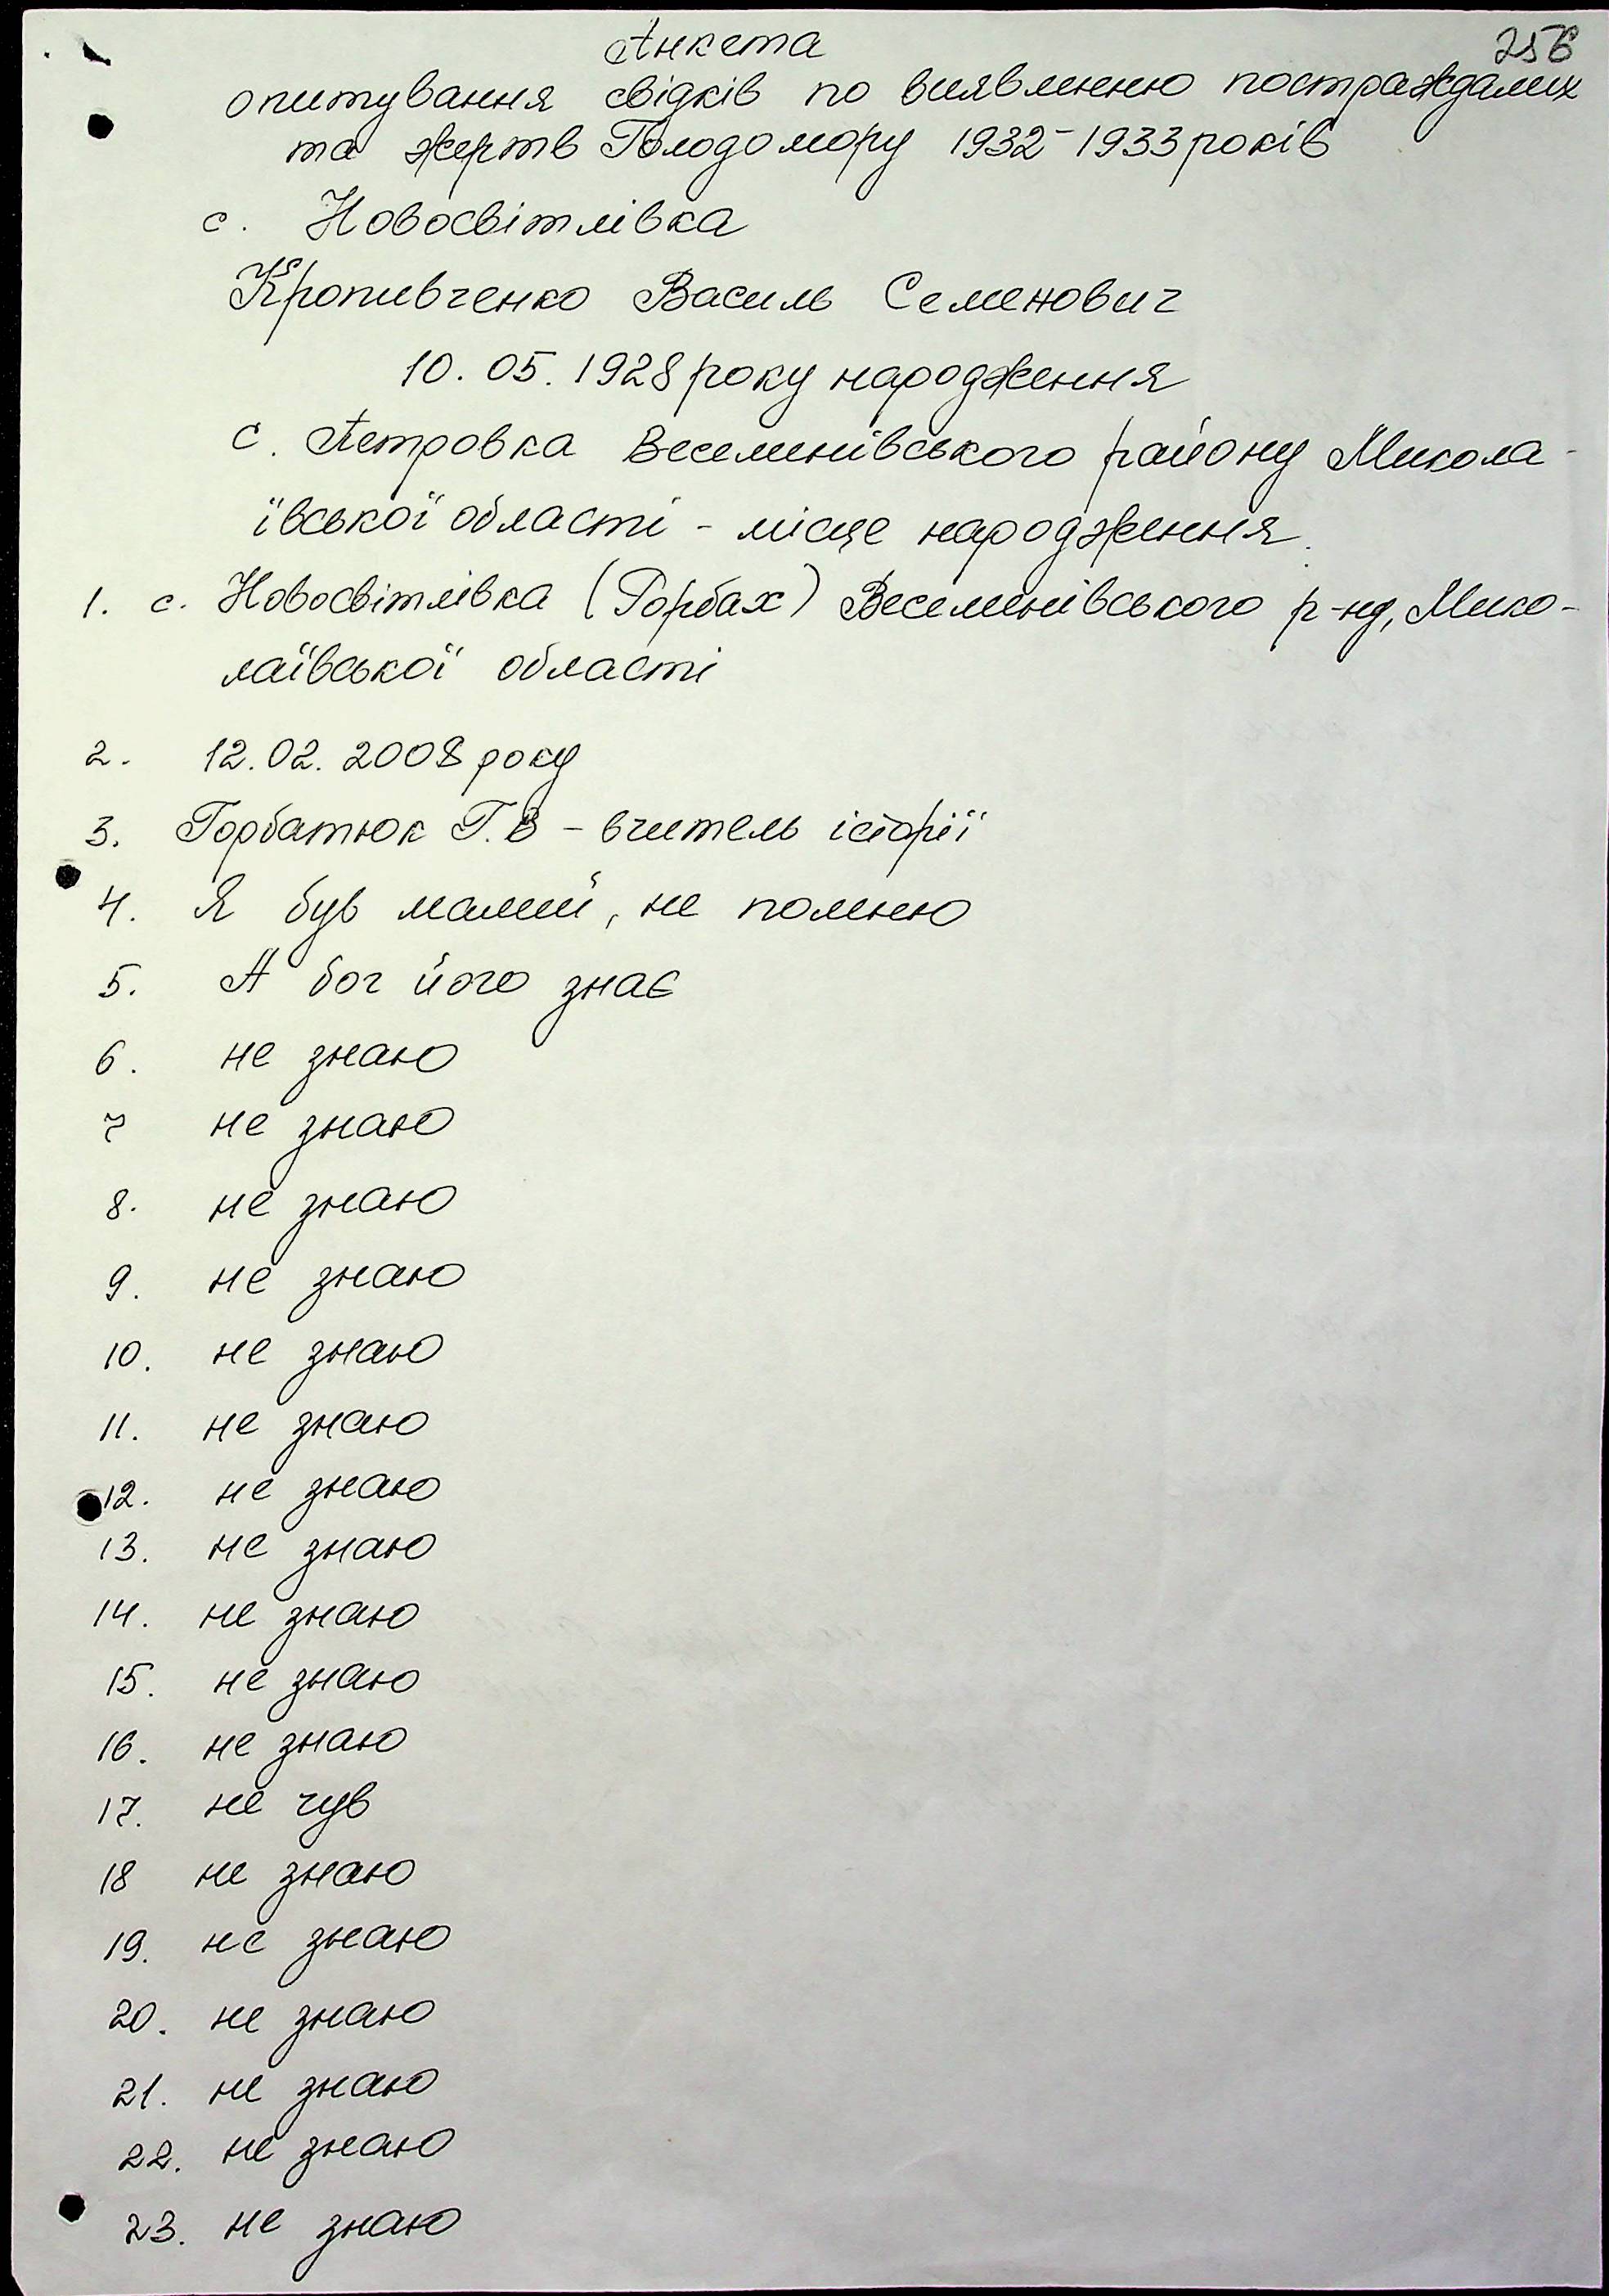 256
Анкета
опитування свідків по виявленню постраждалих
та жертв Голодомору 1932-1933 років
с. Новосвітлівка
Кропивченко Василь Семенович
10.05.1928 року народження
с. Петровка Веселинівського району Микола-
ївської області - місце народження.
1. с. Новосвітлівка (Горбах) Веселинівського р-ну, Мико-
лаївської області
2. 12.02.2008 року
3. Горбатюк Г.В - вчитель історії
4. Я був малий, не помню
5. А бог його знає
6. не знаю
7 не знаю
8. не знаю
9. не знаю
10. не знаю
11. не знаю
12. не знаю
13. не знаю
14. не знаю
15. не знаю
16. не знаю
17. не чув
18 не знаю
19. не знаю
20. не знаю
21. не знаю
22. не знаю
23. не знаю